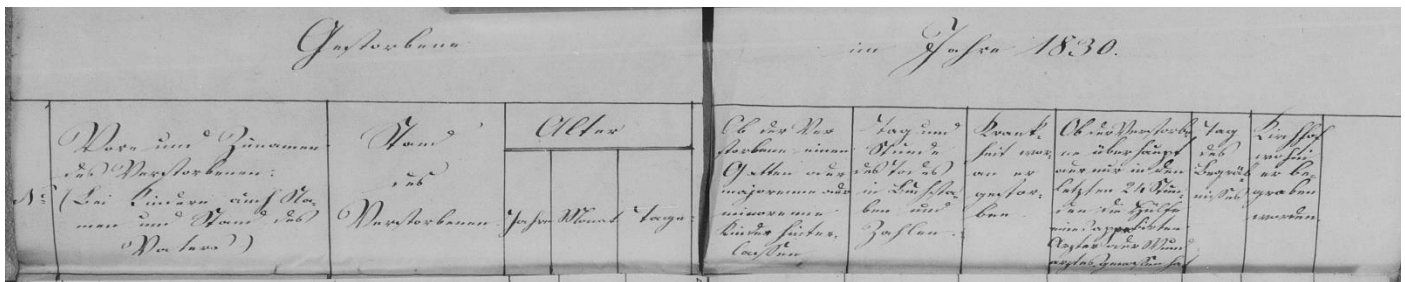 Gestorbene im Jahre 1830.
No
Vor- und Zunamen
des Verstorbenen.
(Bei Kindern auch Na-
men und Stand des
Vaters)
Stand
des
Verstorbenen.
Alter
Jahre
Monat
Tage
Ob der Ver
storbene einen
Gatten oder
majorenne oder
minorenne
Kinder hinter-
lassen
Tag und
Stunde
des Todes
in Buchsta-
ben und
Zahlen.
Krank-
heit wor-
an er
gestor-
ben
Ob der Verstorbe-
ne überhaupt
oder nur in den
letzten 24 Stun-
den die Hülfe
eines approbirten
Arztes oder Wund
arztes genossen hat
Tag
des
Begräb
nisses
Kirchhof
wohin
er be-
graben
worden.